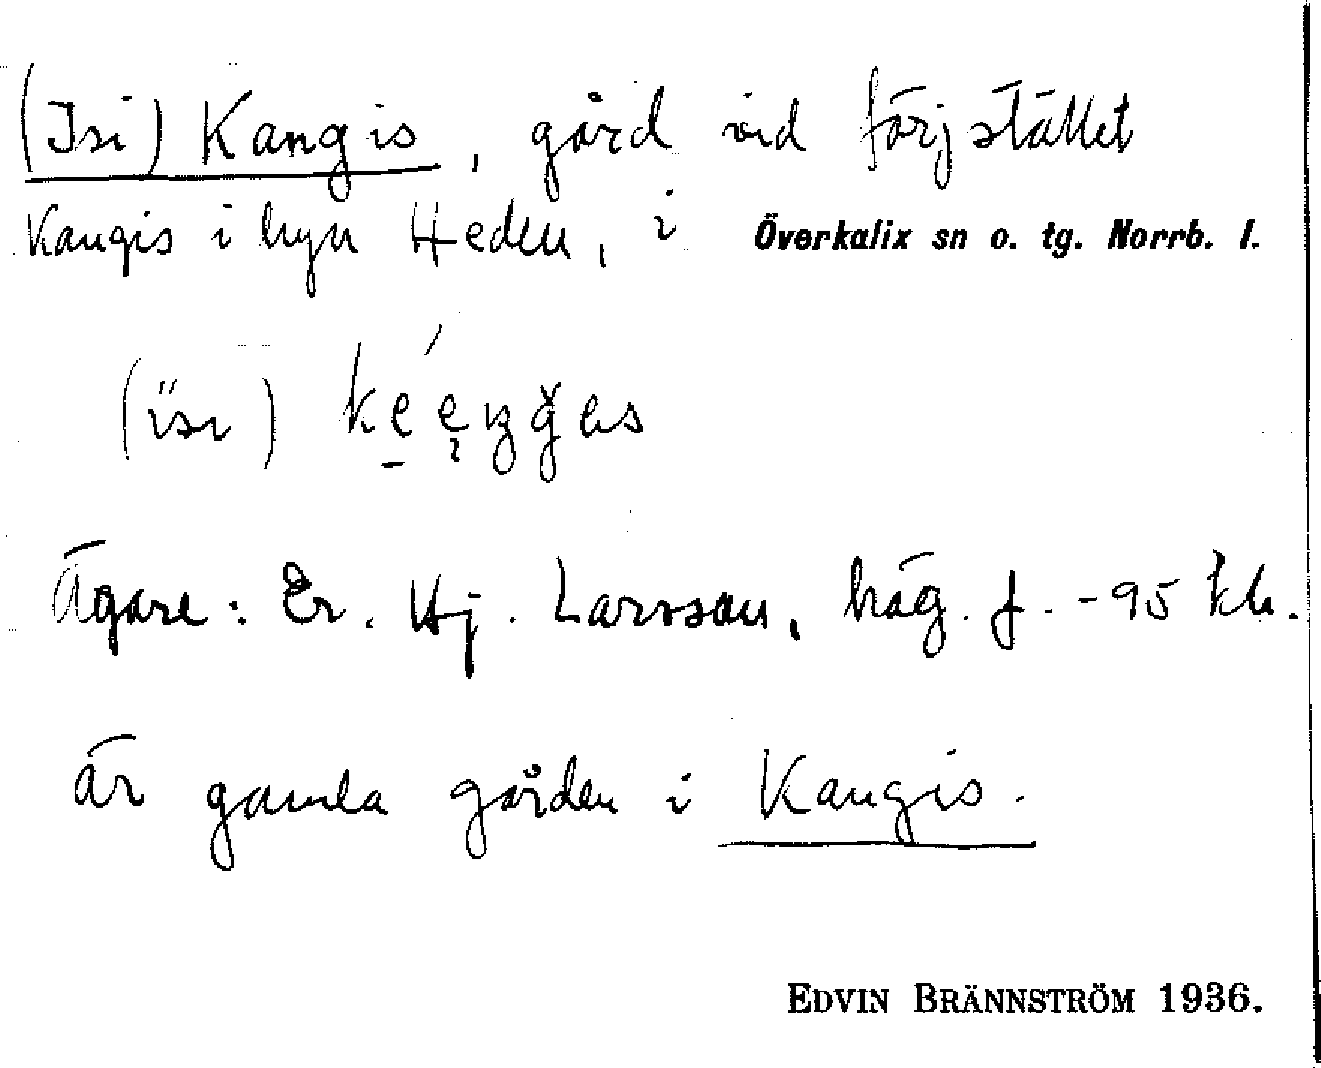 (Isi) Kangis, gård vid färjstället
Kangis i byn Heden, i Överkalix sn o. tg. Norrb. l.
(ïsı)
Ägare: Er. Hj. Larsson, häg. f. -95 kh.
är gamla gården i Kangis.
EDVIN BRÄNNSTRÖM 1936.